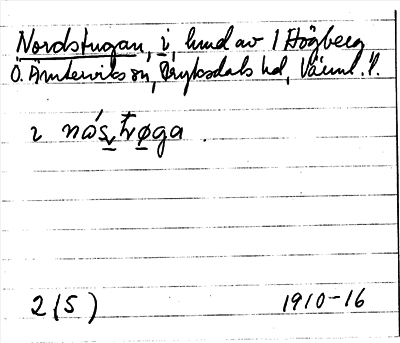 Nordstugan, i, hmd av 1 Högberg
Ö. Ämterviks sn, Fryksdals hd, Värml. l.
ɩ nø´stvøga .
2 (5) 1910-16